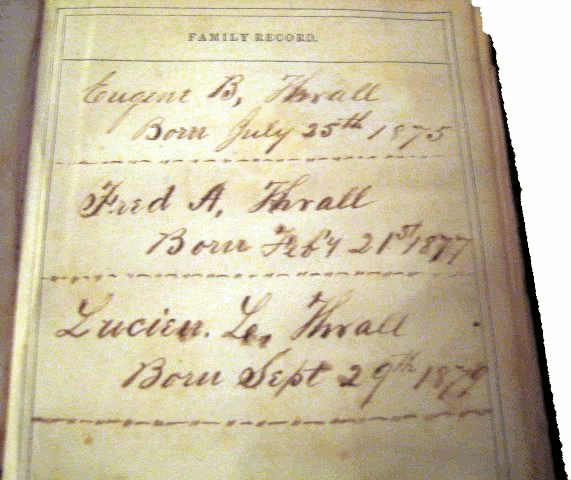 FAMILY RECORD.
Eugene B, Thrall
Born July 25th 1875
Fred A, Thrall
Born Feb'y 21st 1877
Lucien. L. Thrall
Born Sept 29th 1879